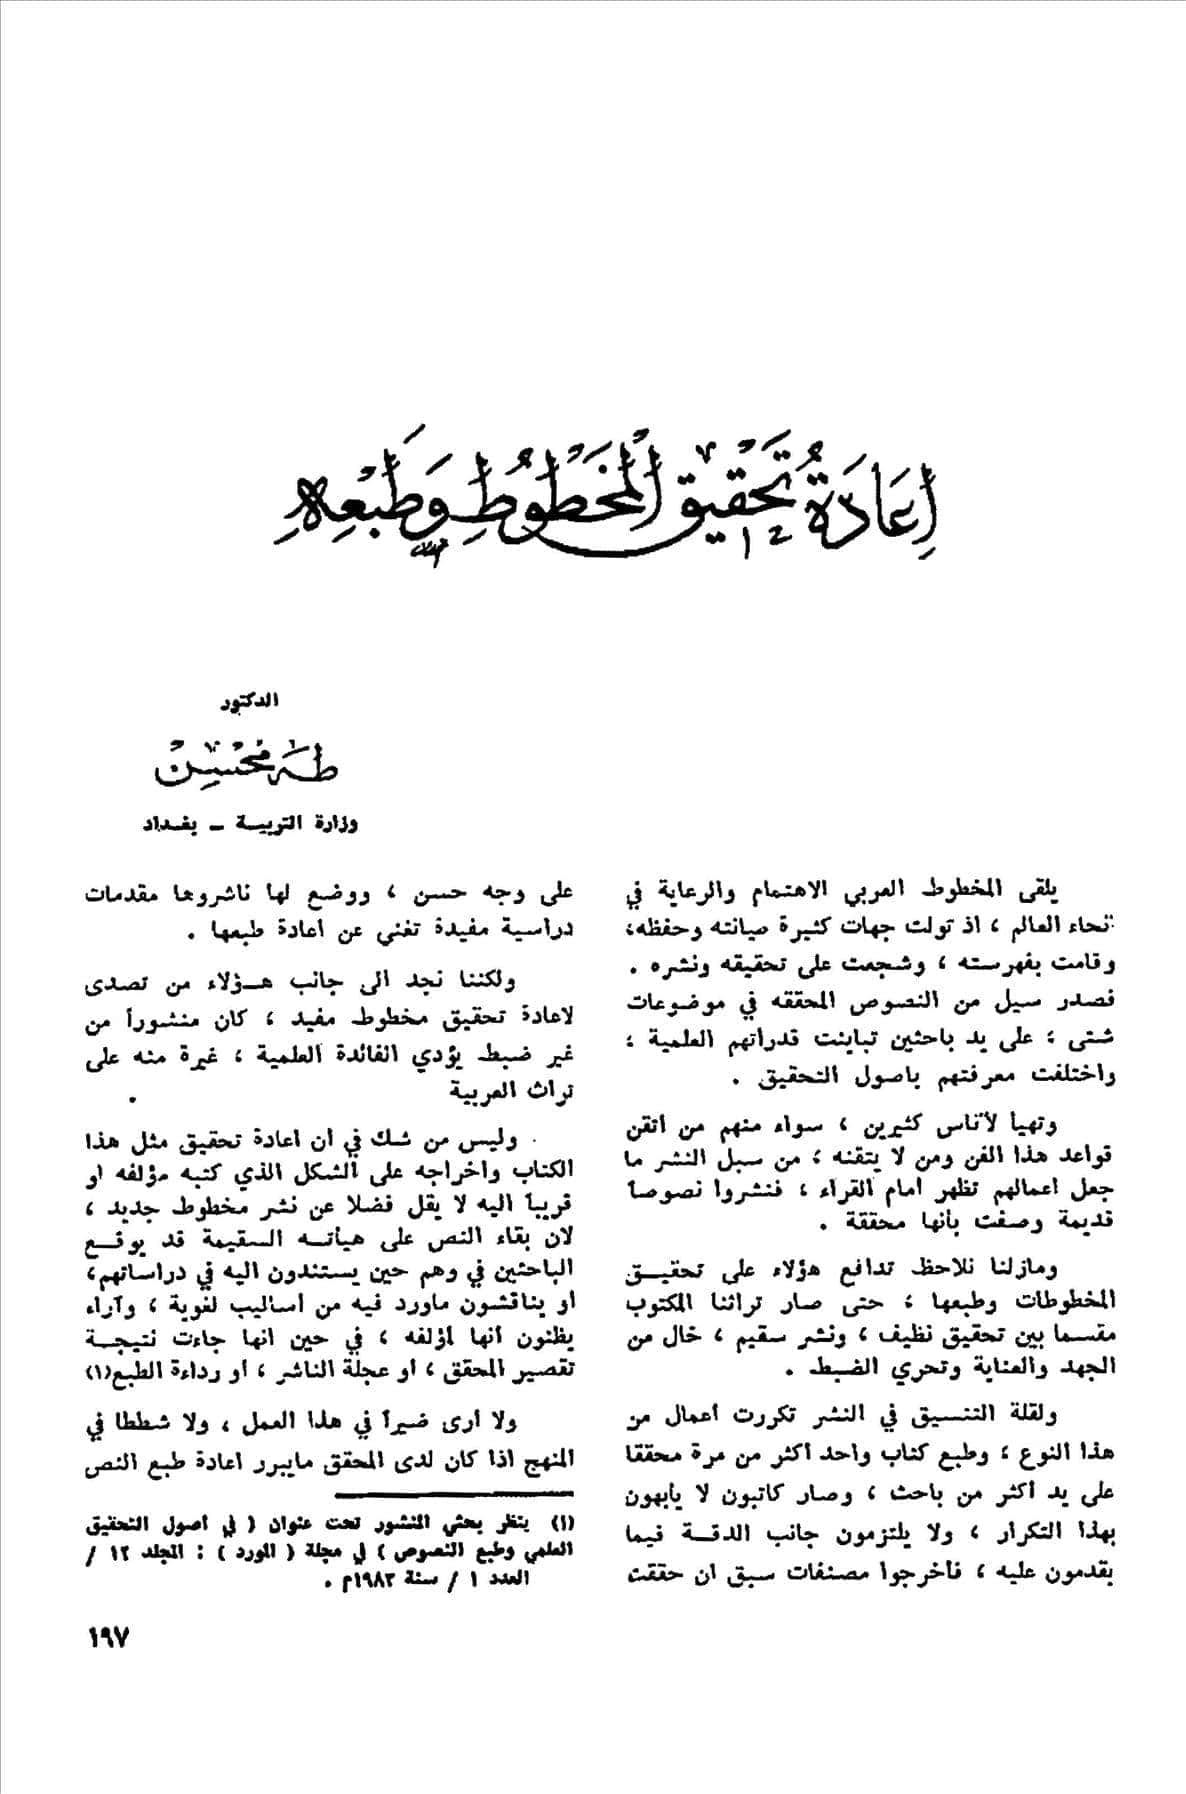 إِعَادَةُ تَحْقِيقِ الْمَخْطُوطِ وَطَبْعِهِ
الدكتور
طه محسن
وزارة التربيــة ــ بغــداد
يلقى المخطوط العربي الاهتمام والرعاية في
انحاء العالم ، اذ تولت جهات كثيرة صيانته وحفظه،
وقامت بفهرسته ، وشجعت على تحقيقه ونشره .
فصدر سيل من النصوص المحققه في موضوعات
شتى ، على يد باحثين تباينت قدراتهم العلمية ،
واختلفت معرفتهم باصول التحقيق .
وتهيأ لأناس كثيرين ، سواء منهم من أتقن
قواعد هذا الفن ومن لا يتقنه ، من سبل النشر ما
جعل اعمالهم تظهر أمام القراء ، فنشروا نصوصاً
قديمة وصفت بأنها محققة .
ومازلنا نلاحظ تدافع هؤلاء على تحقيــق
المخطوطات وطبعها ، حتى صار تراثنا المكتوب
مقسما بين تحقيق نظيف ، ونشر سقيم ، خال من
الجهد والعناية وتحري الضبط .
ولقلة التنسيق في النشر تكررت أعمال من
هذا النوع ، وطبع كتاب واحد أكثر من مرة محققا
على يد أكثر من باحث ، وصار كاتبون لا يأبهون
بهذا التكرار ، ولا يلتزمون جانب الدقــة فيما
يقدمون عليه ، فأخرجوا مصنفات سبق ان حققت
على وجه حسن ، ووضع لها ناشروها مقدمات
دراسية مفيدة تغني عن اعادة طبعها .
ولكننا نجد الى جانب هــؤلاء من تصدى
لاعادة تحقيق مخطوط مفيد ، كان منشوراً من
غير ضبط يؤدي الفائدة العلمية ، غيرة منه على
تراث العربية .
وليس من شك في أن اعادة تحقيق مثل هذا
الكتاب واخراجه على الشكل الذي كتبه مؤلفه او
قريباً اليه لا يقل فضلا عن نشر مخطوط جديد ،
لان بقاء النص على هيأتــه السقيمة قد يوقــع
الباحثين في وهم حين يستندون اليه في دراساتهم،
أو يناقشون ماورد فيه من أساليب لغوية ، وآراء
يظنون أنها لمؤلفه ، في حين انها جاءت نتيجــة
تقصير المحقق ، أو عجلة الناشر ، أو رداءة الطبع(١)
ولا أرى ضيراً في هذا العمل ، ولا شططا في
المنهج اذا كان لدى المحقق مايبرر اعادة طبع النص
(١) ينظر بحثي المنشور تحت عنوان ( في اصول التحقيق
العلمي وطبع النصوص ) في مجلة ( المورد ) : المجلد ١٢ /
العدد ١ / سنة ١٩٨٣م .
١٩٧